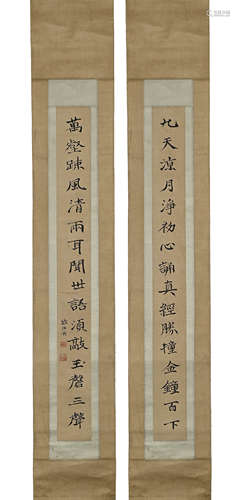 九天涼月淨初心誦真經勝撞金鐘百下
萬壑疎風清兩耳聞世語須敲玉磬三聲